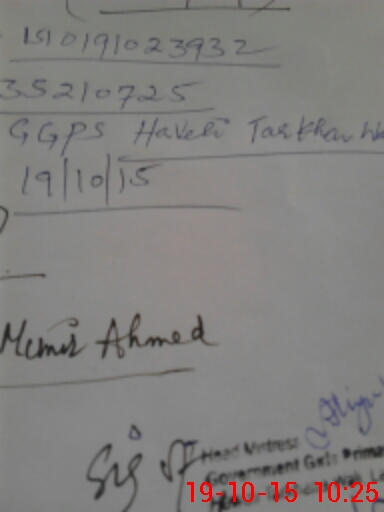 1510191023932
35210725
GGPS Haveli Tarkhan
19/10/15
Ahmed
Head Mistress
Government Girls Prima
19-10-15 10:25